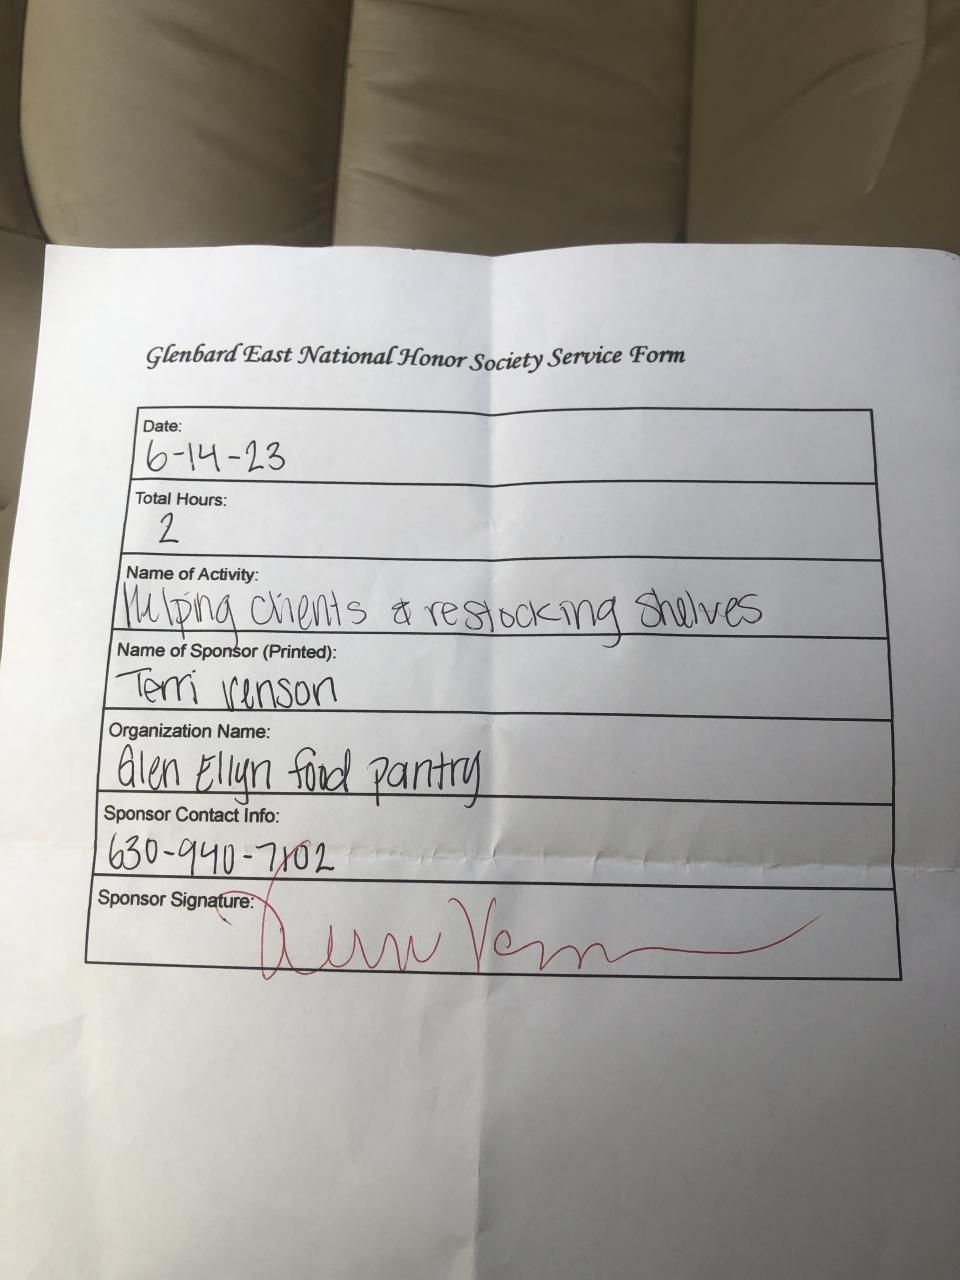 Glenbard East National Honor Society Service Form
Date:
6-14-23
Total Hours:
2
Name of Activity:
Helping clients & restocking shelves
Name of Sponsor (Printed):
Terri Venson
Organization Name:
Glen Ellyn food pantry
Sponsor Contact Info:
630-940-7102
Sponsor Signature: